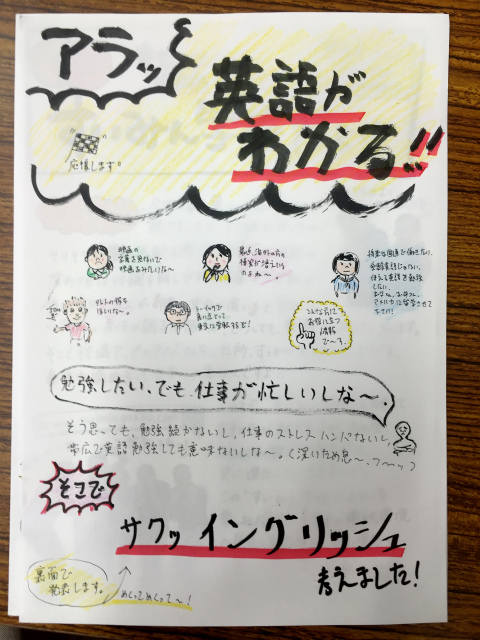 アラッ
英語が
わかる!!
応援します。
映画の
字幕を見ないで
映画みたいな〜
最近、海外の方の
接客が増えている
のよね〜。
将来は国連で働きたい。
受験英語じゃない、
使える英語を勉強
したい。
お父さん、お母さん、
アメリカに留学させて
下さい!
外人の嫁を
ほしいな〜。
トーイックで
良い点とって、
東京に
こんな方に
お役に立つ
情報
で〜す。
勉強したい、でも仕事が忙しいしな〜。
そう思っても、勉強続かないし、仕事のストレスハンパないし、
帯広で英語勉強しても意味ないしな〜。(深いため息〜、フ〜ッ)
そこで
サクッイングリッシュ
考えました!
裏面で
発表します。
めくってめくって〜!